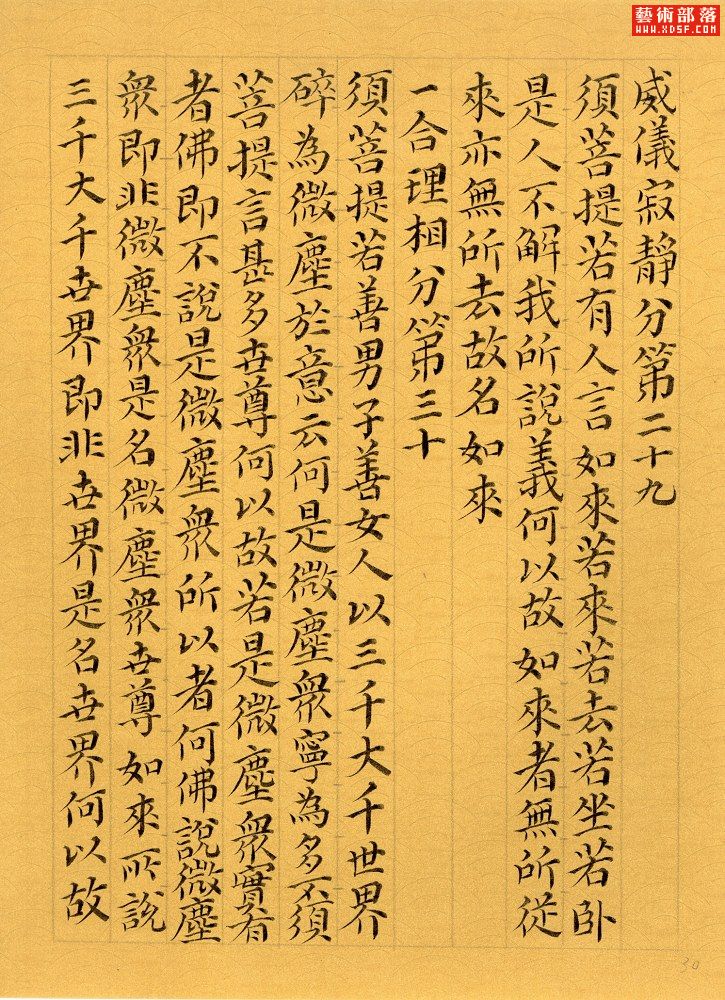 藝術部落
WWW.XDSF.COM
威儀寂靜分第二十九
須菩提若有人言如來若來若去若坐若卧
是人不解我所說義何以故如來者無所從
來亦無所去故名如來
一合理相分第三十
須菩提若善男子善女人以三千大千世界
碎為微塵於意云何是微塵衆寧為多不須
菩提言甚多世尊何以故若是微塵衆實有
者佛即不說是微塵衆所以者何佛說微塵
衆即非微塵衆是名微塵衆世尊如來所說
三千大千世界即非世界是名世界何以故
30